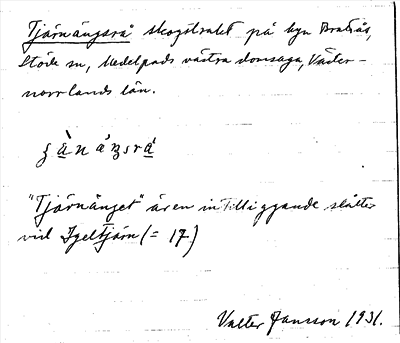 Tjärnängsrå skogstrakt på byn Bräcke,
Stöde sn, Medelpads västra domsaga, Väster-
norrlands län.
"Tjärnänget" är en intilliggande slåtter
vid Igeltjärn (= 17)
Valter Jansson 1931.